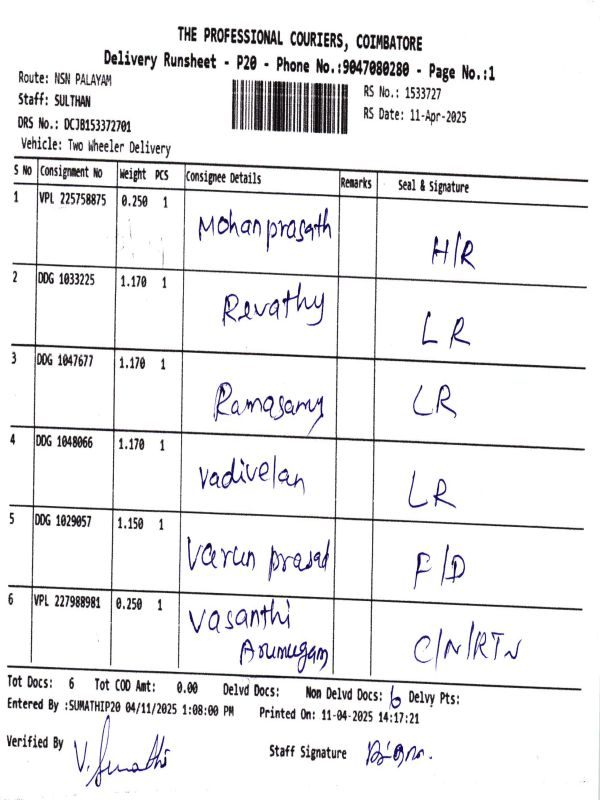 THE PROFESSIONAL COURIERS, COIMBATORE
Delivery Runsheet - P20 - Phone No.:9047080280 - Page No.:1
Route: NSN PALAYAM
RS No.: 1533727
Staff: SULTHAN
RS Date: 11-Apr-2025
DRS No.: DCJB153372701
Vehicle: Two Wheeler Delivery
S No Consignment No Weight PCS Consignee Details Remarks Seal & Signature
1 VPL 225758875 0.250 1 Mohanprasath H/R
2 DDG 1033225 1.170 1 Revathy LR
3 DDG 1047677 1.170 1 Ramasamy LR
4 DDG 1048066 1.170 1 vadivelan LR
5 DDG 1029057 1.150 1 Varun prasad F/D
6 VPL 227988981 0.250 1 Vasanthi
Arumugam C/N/RTN
Tot Docs: 6 Tot COD Amt: 0.00 Delvd Docs: Non Delvd Docs: 6 Delvy Pts:
Entered By :SUMATHIP20 04/11/2025 1:08:00 PM Printed On: 11-04-2025 14:17:21
Verified By V. Sumathi Staff Signature